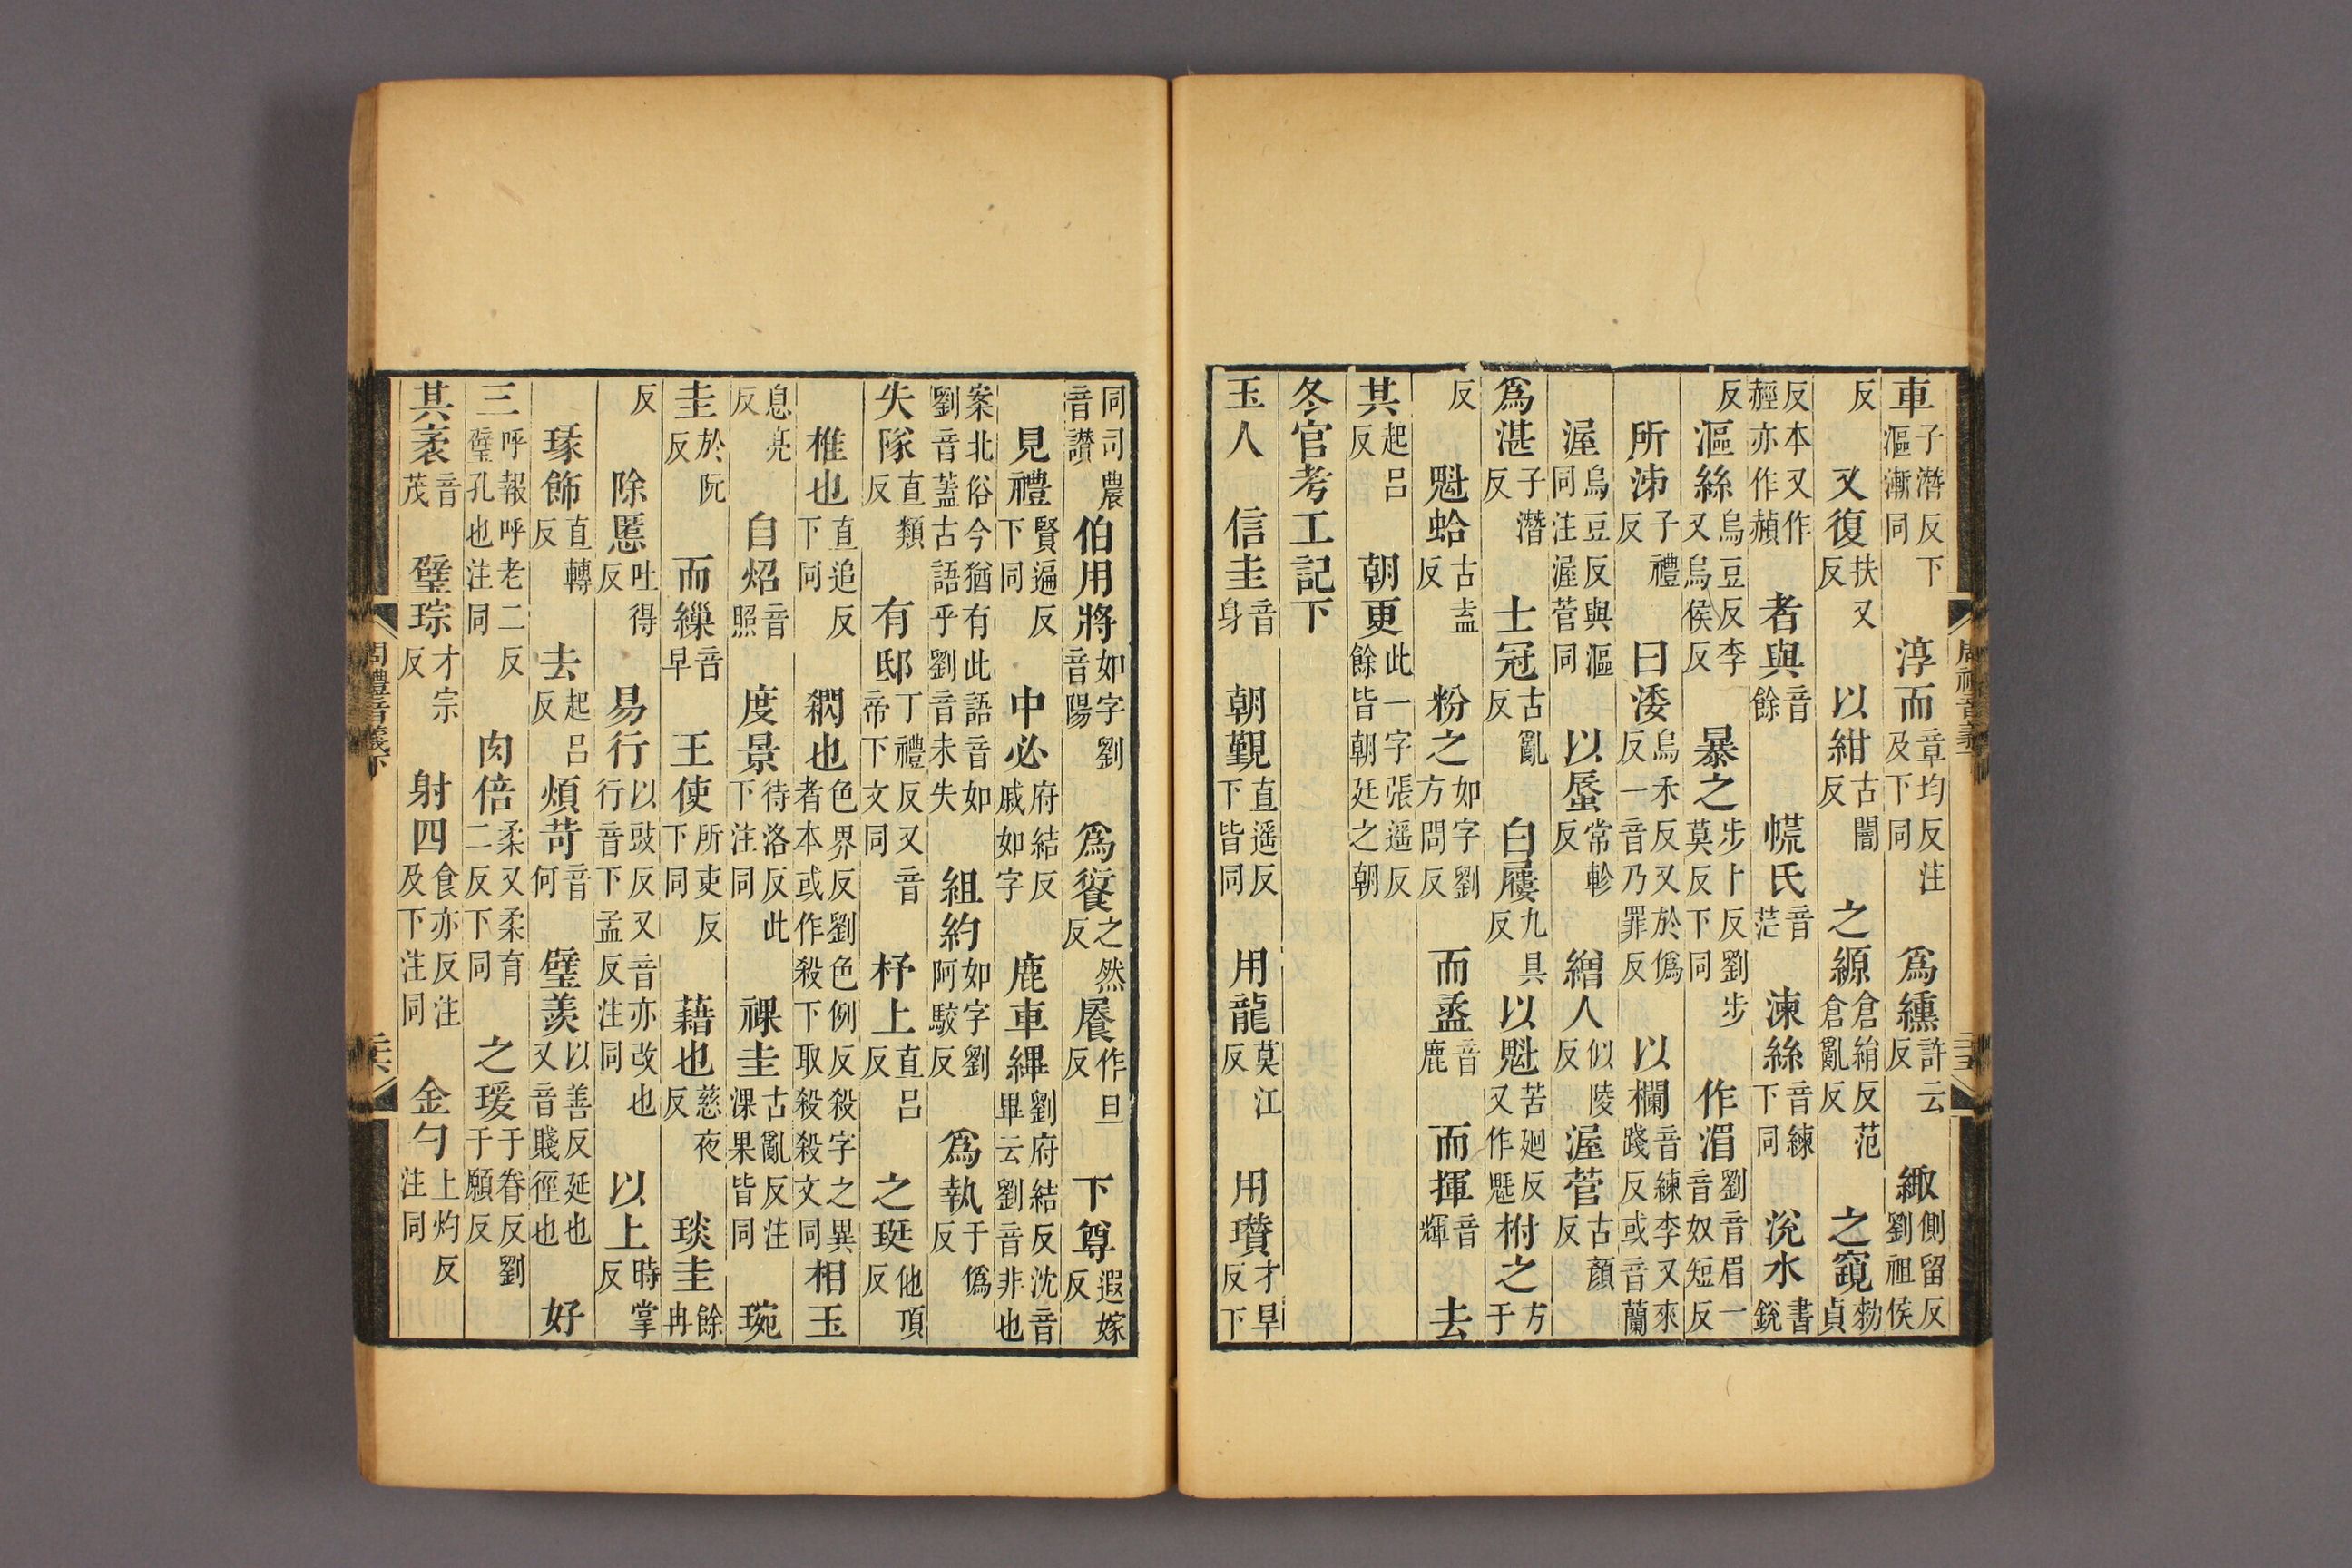 車子潛反下漚漸同 淳而章均反注及下同 爲纁許云反 緅側留反劉祖侯
反 又復扶又反 以紺古闇反 之縓倉絹反范倉亂反 之窺勑貞
反本又作䞓亦作赬 者與音餘 㡛氏音茫 湅絲音練下同 涗水書銳
反 漚絲烏豆反李又烏侯反 暴之步卜反劉步莫反下同 作湄劉音眉一音奴短反
所沛子禮反 曰涹烏禾反又於僞反一音乃罪反 以欄音練李又來踐反或音蘭
渥烏豆反與漚同注渥菅同 以蜃常軫反 繒人似陵反 渥菅古顏反
爲湛子潛反 士冠古亂反 白屨九具反 以魁苦迴反又作䰠 柎之方于
反 魁蛤古盍反 粉之如字劉方問反 而盝音鹿 而揮音輝 去
其起呂反 朝更此一字張遥反餘皆朝廷之朝
冬官考工記下
玉人 信圭音身 朝覲直遥反下皆同 用龍莫江反 用瓚才旱反下
同司農音讚 伯用將如字劉音陽 爲餐之然反 饡作旦反 下尊遐嫁反
見禮賢遍反下同 中必府結反戚如字 鹿車縪劉府結反沈音畢云劉音非也
案北俗今猶有此語音如劉音蓋古語乎劉音未失 組約如字劉阿駮反 爲執于僞反
失隊直類反 有邸丁禮反又音帝下文同 杼上直呂反 之珽他頂反
椎也直追反下同 閷也色界反劉色例反殺字之異者本或作殺下取殺殺文同 相玉
息亮反 自炤音照 度景待洛反此下注同 祼圭古亂反注淉果皆同 琬
圭於阮反 而繅音早 王使所吏反下同 藉也慈夜反 琰圭餘冉
反 除慝吐得反 易行以豉反又音亦改也行音下孟反注同 以上時掌反
瑑飾直轉反 去起呂反 煩苛音何 璧羡以善反延也又音賤徑也 好
三呼報呼老二反璧孔也注同 肉倍柔又柔育二反下同 之瑗于眷反劉于願反
其袤音茂 璧琮才宗反 射四食亦反注及下注同 金勺上灼反注同
周禮音義下
二十五
周禮音義下
二十六